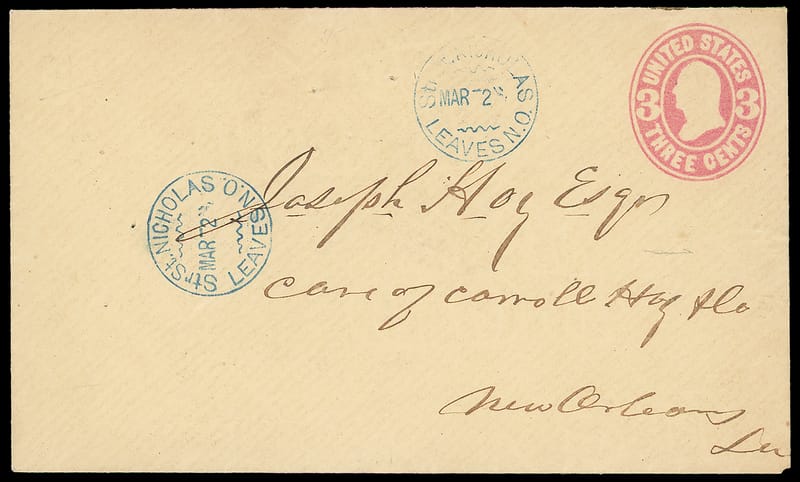 Str St. NICHOLAS
MAR 2
LEAVES N.O.
UNITED STATES
3 3
THREE CENTS
Str St. NICHOLAS
MAR 2
LEAVES N.O.
Joseph Hoy Esqr
care of Carroll Hoy & Co
New Orleans
La